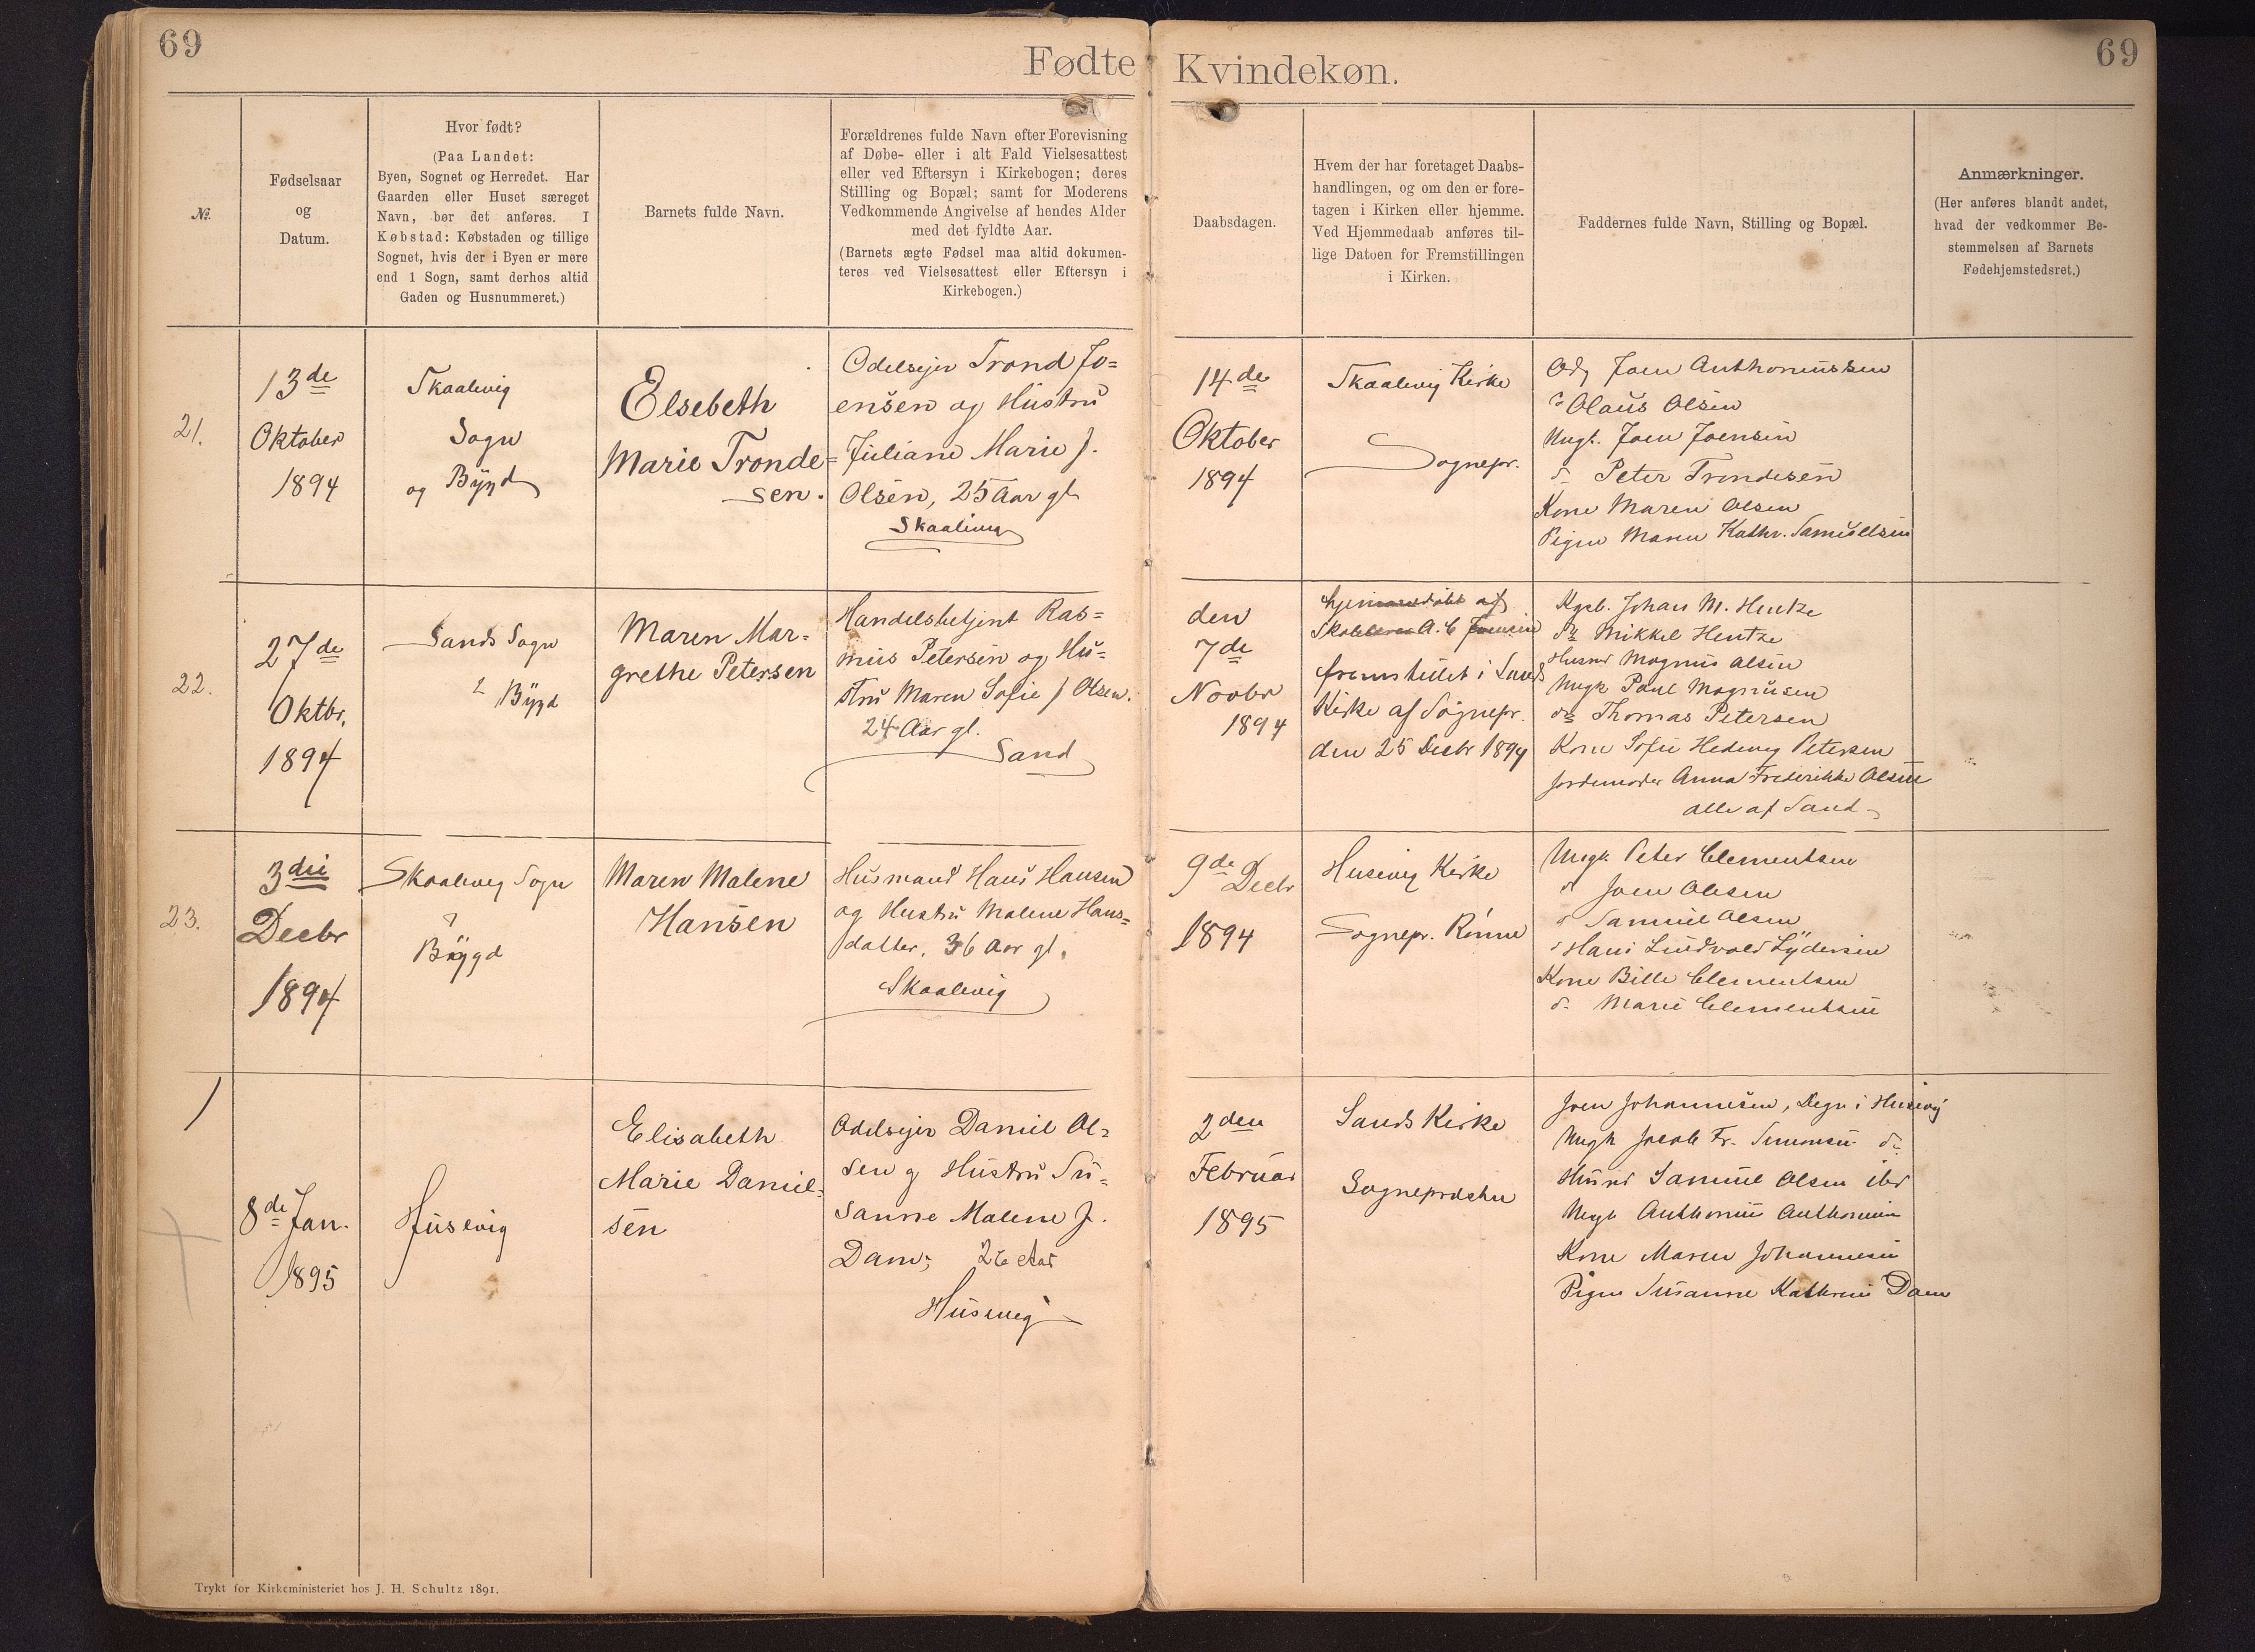 69
Fødte Kvindekøn.
69
№.
Fødselsaar
og
Datum.
Hvor født?
(Paa Landet:
Byen, Sognet og Herredet. Har
Gaarden eller Huset særeget
Navn, bør det anføres. I
Købstad: Købstaden og tillige
Sognet, hvis der i Byen er mere
end 1 Sogn, samt derhos altid
Gaden og Husnummeret.)
Barnets fulde Navn.
Forældrenes fulde Navn efter Forevisning
af Døbe- eller i alt Fald Vielsesattest
eller ved Eftersyn i Kirkebogen; deres
Stilling og Bopæl; samt for Moderens
Vedkommende Angivelse af hendes Alder
med det fyldte Aar.
(Barnets ægte Fødsel maa altid dokumen-
teres ved Vielsesattest eller Eftersyn i
Kirkebogen.)
Daabsdagen.
Hvem der har foretaget Daabs-
handlingen, og om den er fore-
tagen i Kirken eller hjemme.
Ved Hjemmedaab anføres til-
lige Datoen for Fremstillingen
i Kirken.
Faddernes fulde Navn, Stilling og Bopæl.
Anmærkninger.
(Her anføres blandt andet,
hvad der vedkommer Be-
stemmelsen af Barnets
Fødehjemstedsret.)
21.
13de
Oktober
1894
Skaalevig
Sogn
og Bÿgd
Elsebeth
Marie Tronde=
sen.
Odelsejer Trond Jo=
ensen og Hustru
Juliane Marie f.
Olsen, 25 Aar gl.
Skaalevig
14de
Oktober
1894
Skaalevig Kirke
Sognepr.
Odj Joen Anthoniussen
Olaus Olsen
Ungk. Joen Joensen
d. Peter Trondesen
Kone Maren Olsen
Pigen Maren Kathr. Samuelsen
22.
27de
Oktbr.
1894
Sands Sogn
& Bÿgd
Maren Mar-
grethe Petersen
Handelsbetjent Ras=
mus Petersen og Hu=
stru Maren Sofie f Olsen.
24 Aar gl.
Sand
den
7de
Novbr
1894
hjemmedøbt af
Skolelærer A. C. Joensen
fremstillet i Sands
Kirke af Sognepr.
den 25 Decbr 1894
Kgsb. Johan M. Hentze
do Mikkel Hentze
Husmd Magnus Olsen
Ungk Poul Magnusen
do Thomas Petersen
Kone Sofie Hedevig Petersen
Jordemoder Anna Frederikke Olsen
alle af Sand
23.
3die
Decbr
1894
Skaalevig Sogn
&
Bÿgd
Maren Malene
Hansen
Husmand Hans Hansen
og Hustru Malene Hans=
datter, 36 Aar gl.
Skaalevig
9de Decbr
1894
Husevig Kirke
Sognepr. Rønne
Ungk. Peter Clementsen
d Joen Olesen
d Samuel Olsen
d Hans Lindvald Lÿdersen
Kone Bille Clementsen
d. Marie Clementsen
1
8de Jan.
1895
Husevig
Elisabeth
Marie Daniel=
sen
Odelsejer Daniel Ol=
sen og Hustru Su=
sanne Malene f.
Dam; 26 Aar
Husevig
2den
Februar
1895
Sands Kirke
Sognepræsten
Joen Johannesen, Degn i Husevig
Ungk Jacob Fr. Simonsen d.
Husmd Samuel Olsen ibd
Ungk Anthonius Anthonius
Kone Maren Johannesen
Pigen Susanne Kathrine Dam
Trykt for Kirkeministeriet hos J. H. Schultz 1891.